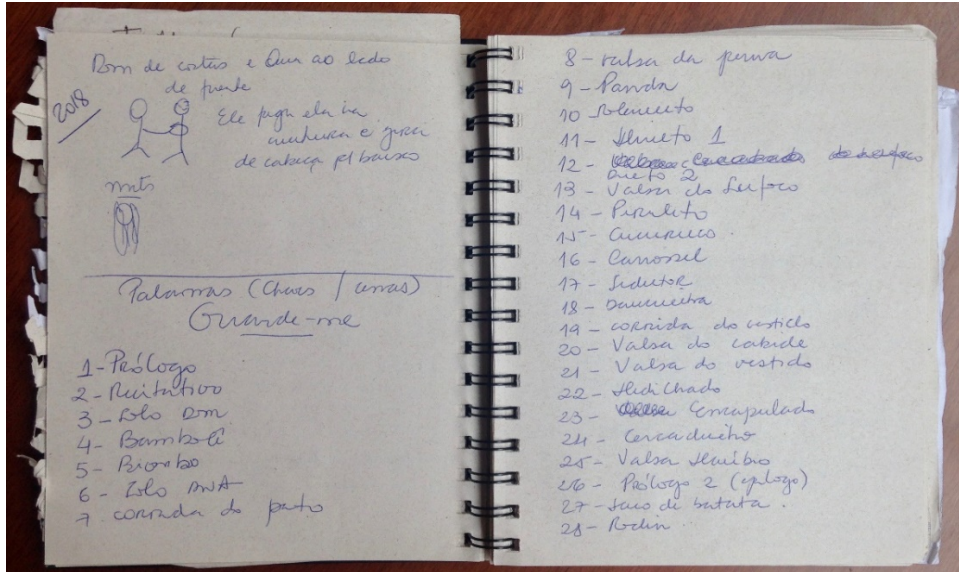 Dom de costas e Ana ao lado
de frente
2018
Ele pega ela na
cintura e gira
de cabeça p/ baixo
Palavras (Chaves / cenas)
Guarde-me
1 - Prólogo
2 - Recitativo
3 - Solo Dom
4 - Bambolê
5 - Biombo
6 - Solo ANA
7. corrida do pato
8 - valsa da perna
9 - Panda
10 - Rolamento
11 - Dueto 1
12 -
Dueto 2
13 - Valsa do Sufoco
14 - Pirulito
15 -
16 - Carrossel
17 - Sedutor
18 -
19 - corrida do vestido
20 - Valsa do cabide
21 - Valsa do vestido
22 -
23 - Encapulado
24 -
25 - Valsa
26 - Prólogo 2 (epílogo)
27 - Saco de batata.
28 - Rodin